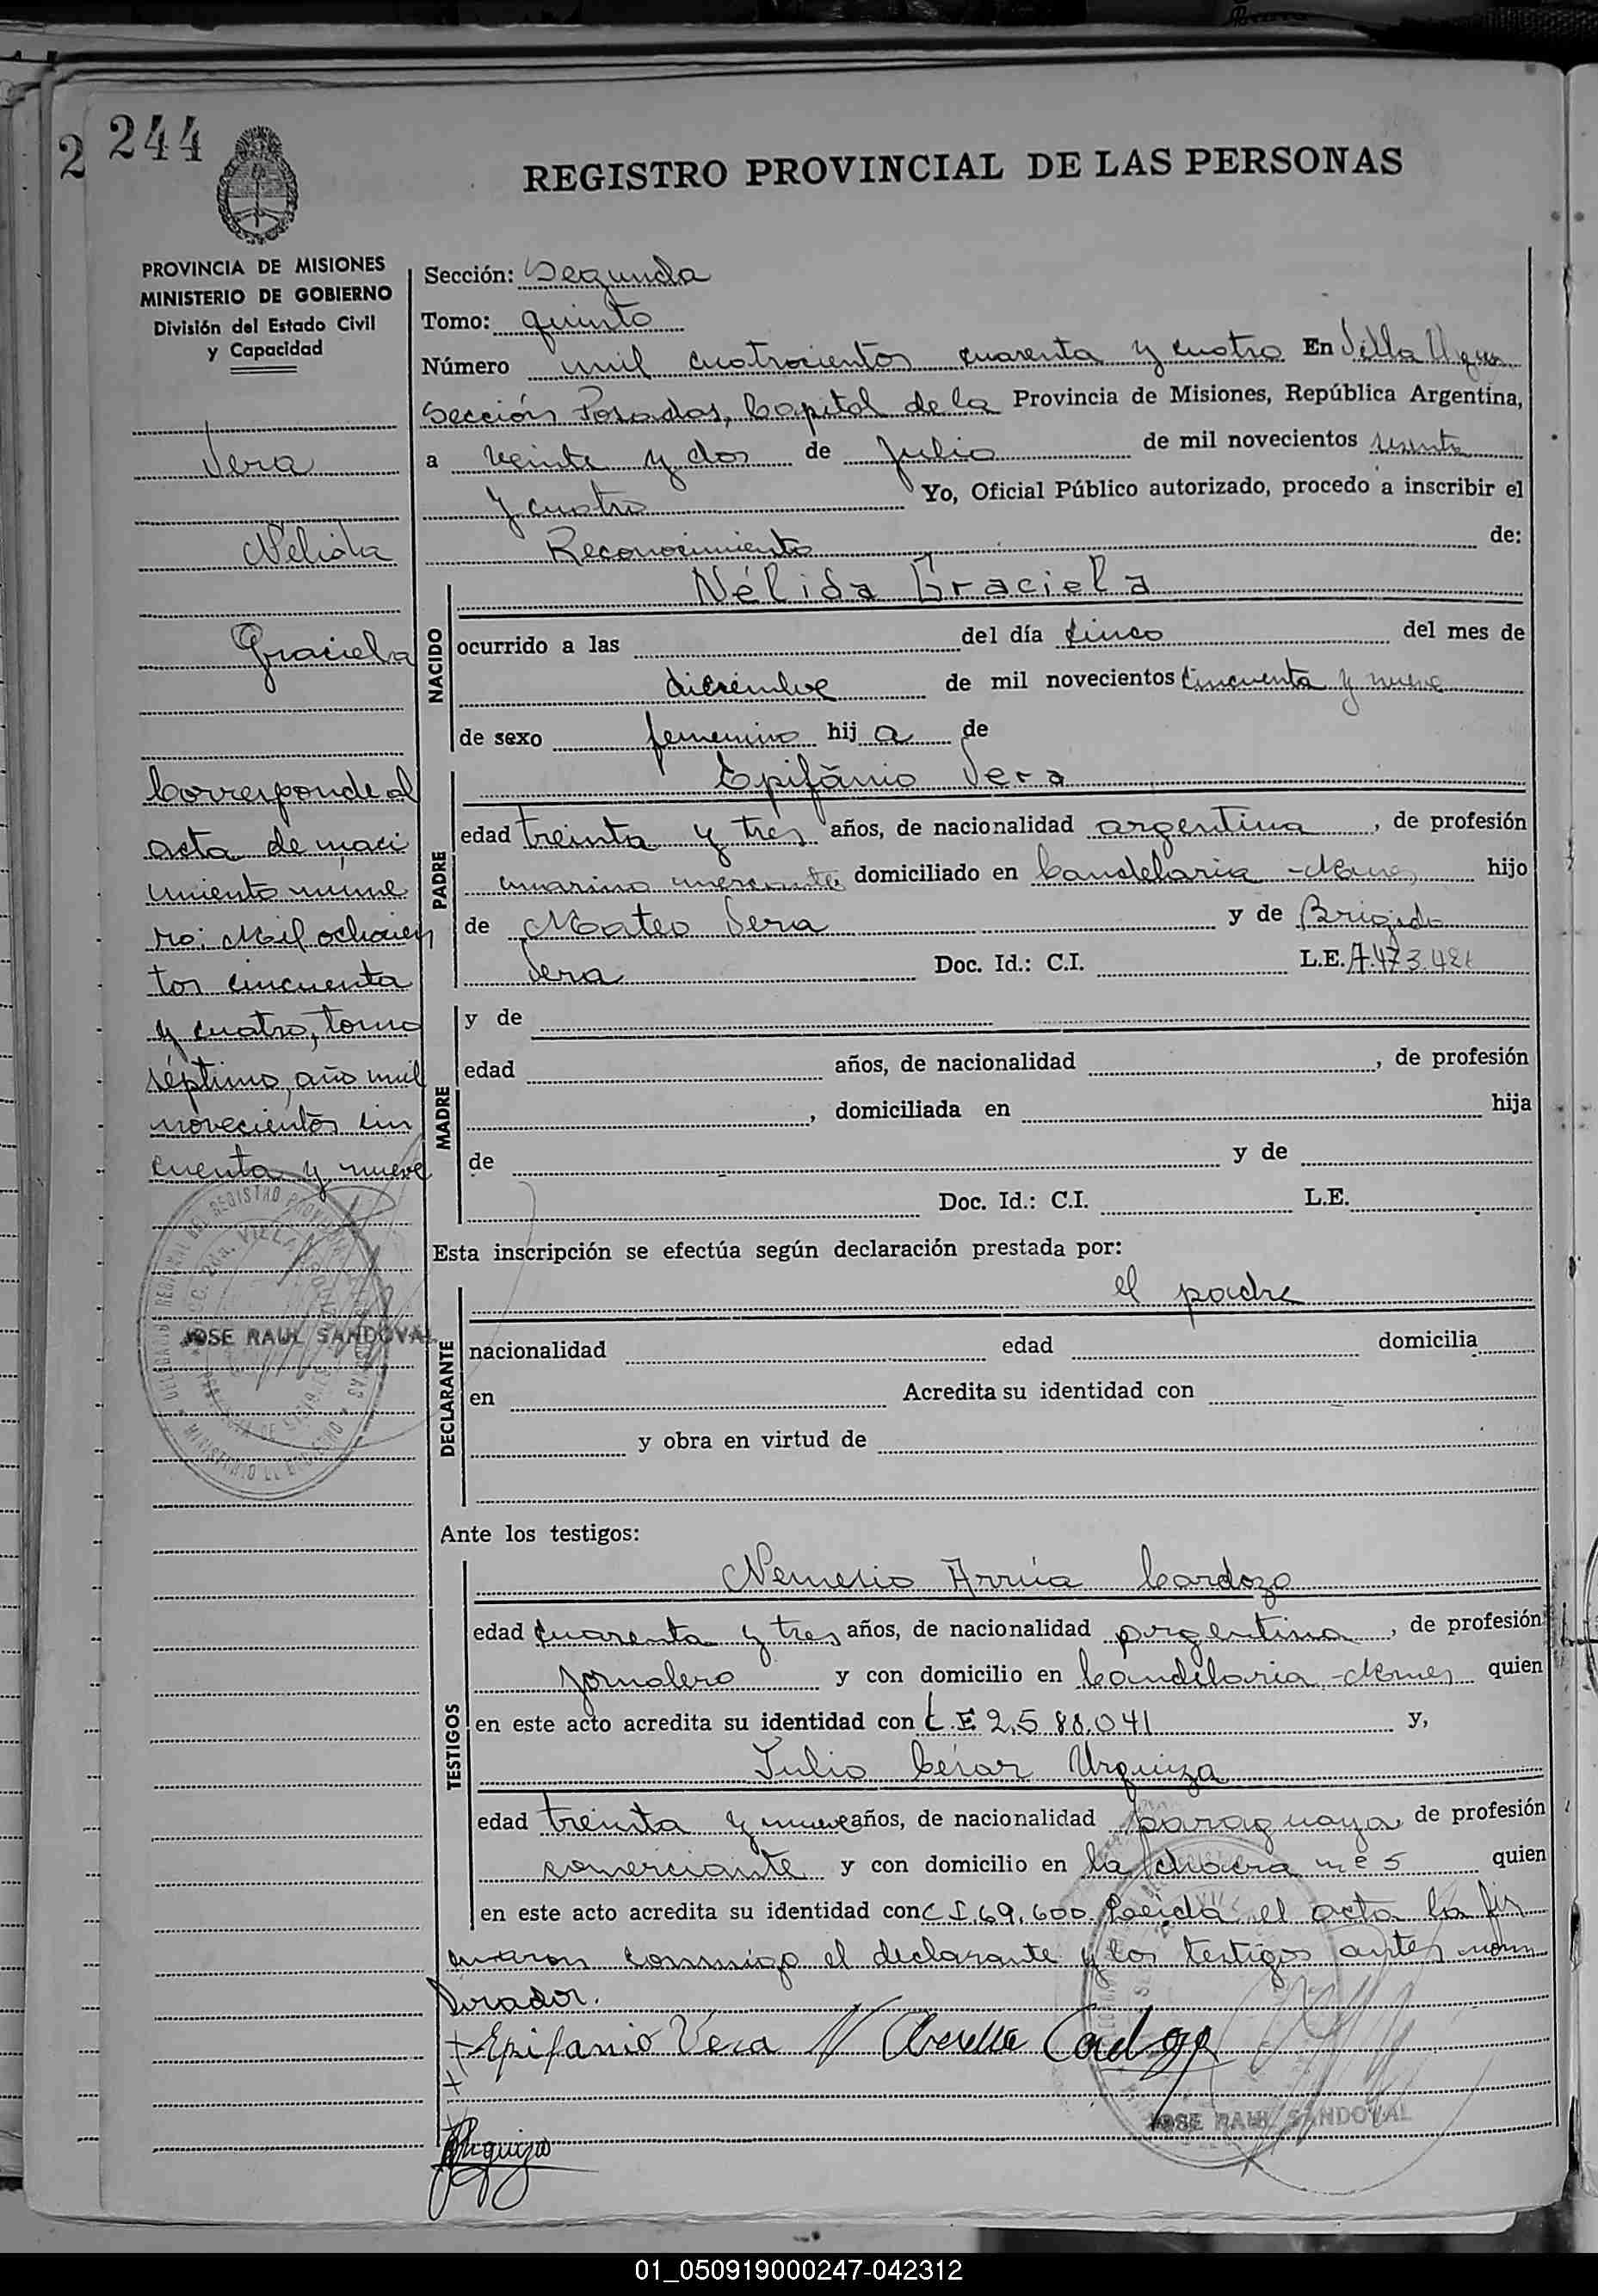 2 244
REGISTRO PROVINCIAL DE LAS PERSONAS
PROVINCIA DE MISIONES
MINISTERIO DE GOBIERNO
División del Estado Civil
y Capacidad
Vera
Nelida
Graciela
Corresponde al
acta de naci
miento núme
ro: Mil ochocien
tos cincuenta
y cuatro, tomo
séptimo, año mil
novecientos cin
cuenta y nueve
JOSE RAUL SANDOVAL
Sección: Segunda
Tomo: quinto
Número mil cuatrocientos cuarenta y cuatro En Villa
Sección Posadas, Capital de la Provincia de Misiones, República Argentina,
a veinte y dos de Julio de mil novecientos sesenta
y cuatro Yo, Oficial Público autorizado, procedo a inscribir el
Reconocimiento de:
NACIDO
Nélida Graciela
ocurrido a las del día cinco del mes de
diciembre de mil novecientos cincuenta y nueve
de sexo femenino hij a de
PADRE
Epifánio Vera
edad treinta y tres años, de nacionalidad argentina, de profesión
marino mercante domiciliado en Candelaria - Mnes hijo
de Mateo Vera y de Brigida
Vera Doc. Id.: C.I. L.E.
MADRE
y de
edad años, de nacionalidad , de profesión
, domiciliada en hija
de y de
Doc. Id.: C.I. L.E.
Esta inscripción se efectúa según declaración prestada por:
DECLARANTE
el padre
nacionalidad edad domicilia
en Acredita su identidad con
y obra en virtud de
Ante los testigos:
TESTIGOS
Nemesio Arrúa Cardozo
edad cuarenta y tres años, de nacionalidad argentina, de profesión
jornalero y con domicilio en Candelaria - Mnes quien
en este acto acredita su identidad con L.E 2.588.041 y,
Julio César Urquiza
edad treinta y nueve años, de nacionalidad paraguaya, de profesión
comerciante y con domicilio en la chacra nº 5 quien
en este acto acredita su identidad con C I. 69.600. Leida el acta la fir
maron conmigo el declarante y los testigos antes nom
brados.
Epifanio Vera N Cardozo
JOSE RAUL SANDOVAL
Urquiza
01_050919000247-042312